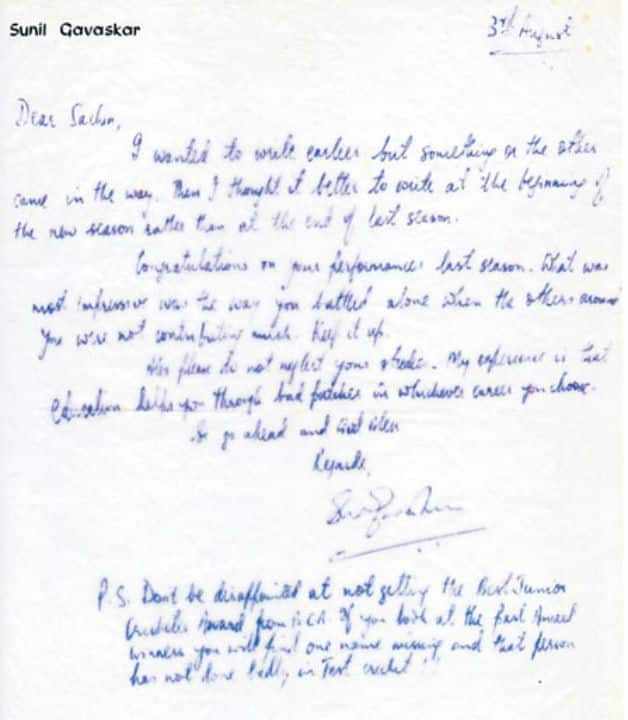 Sunil Gavaskar
3rd August
Dear Sachin,
I wanted to write earlier but something or the other
came in the way. Then I thought it better to write at the beginning of
the new season rather than at the end of last season.
Congratulations on your performances last season. What was
most impressive was the way you batted alone when the others around
you were not contributing much. Keep it up.
Also please do not neglect your studies. My experience is that
education helps you through bad patches in whichever career you choose.
So go ahead and God bless
Regards,
P.S. Don't be disappointed at not getting the Best Junior
Cricketer Award from B.C.A. If you look at the past Award
winners you will find one name missing and that person
has not done badly in Test cricket!!